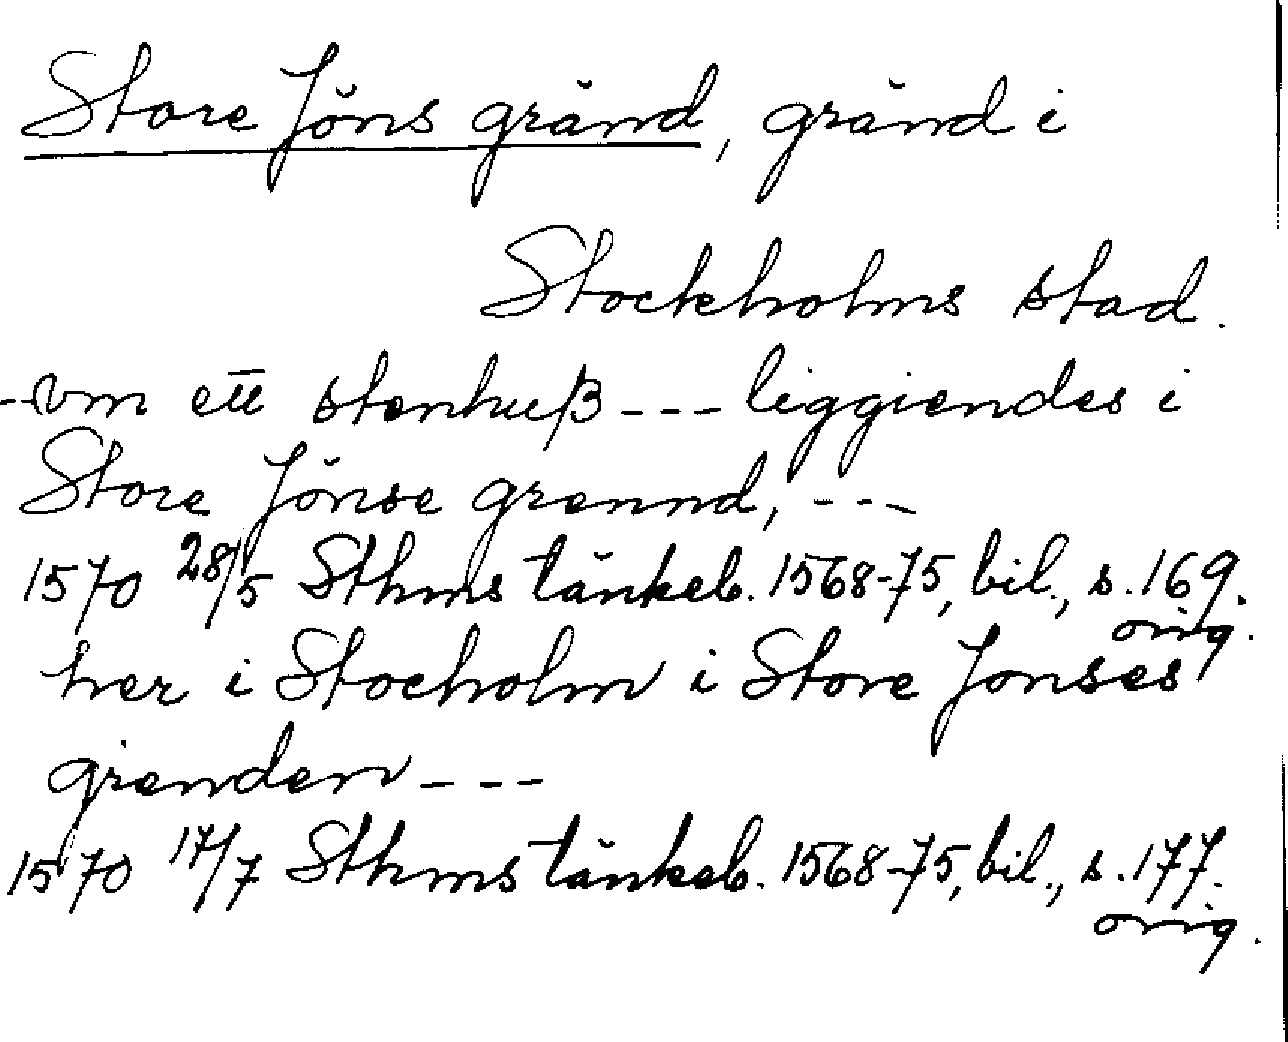 Store Jöns gränd, gränd i
Stockholms stad.
--vm ett stenhuß --- liggiendes i
Store Jönse grennd, ---
1570 28/5 Sthms tänkeb. 1568-75, bil., s. 169.
orig.
her i Stocholm i Store Jonses
grenden ---
1570 17/7 Sthms tänkeb. 1568-75, bil., s. 177.
orig.